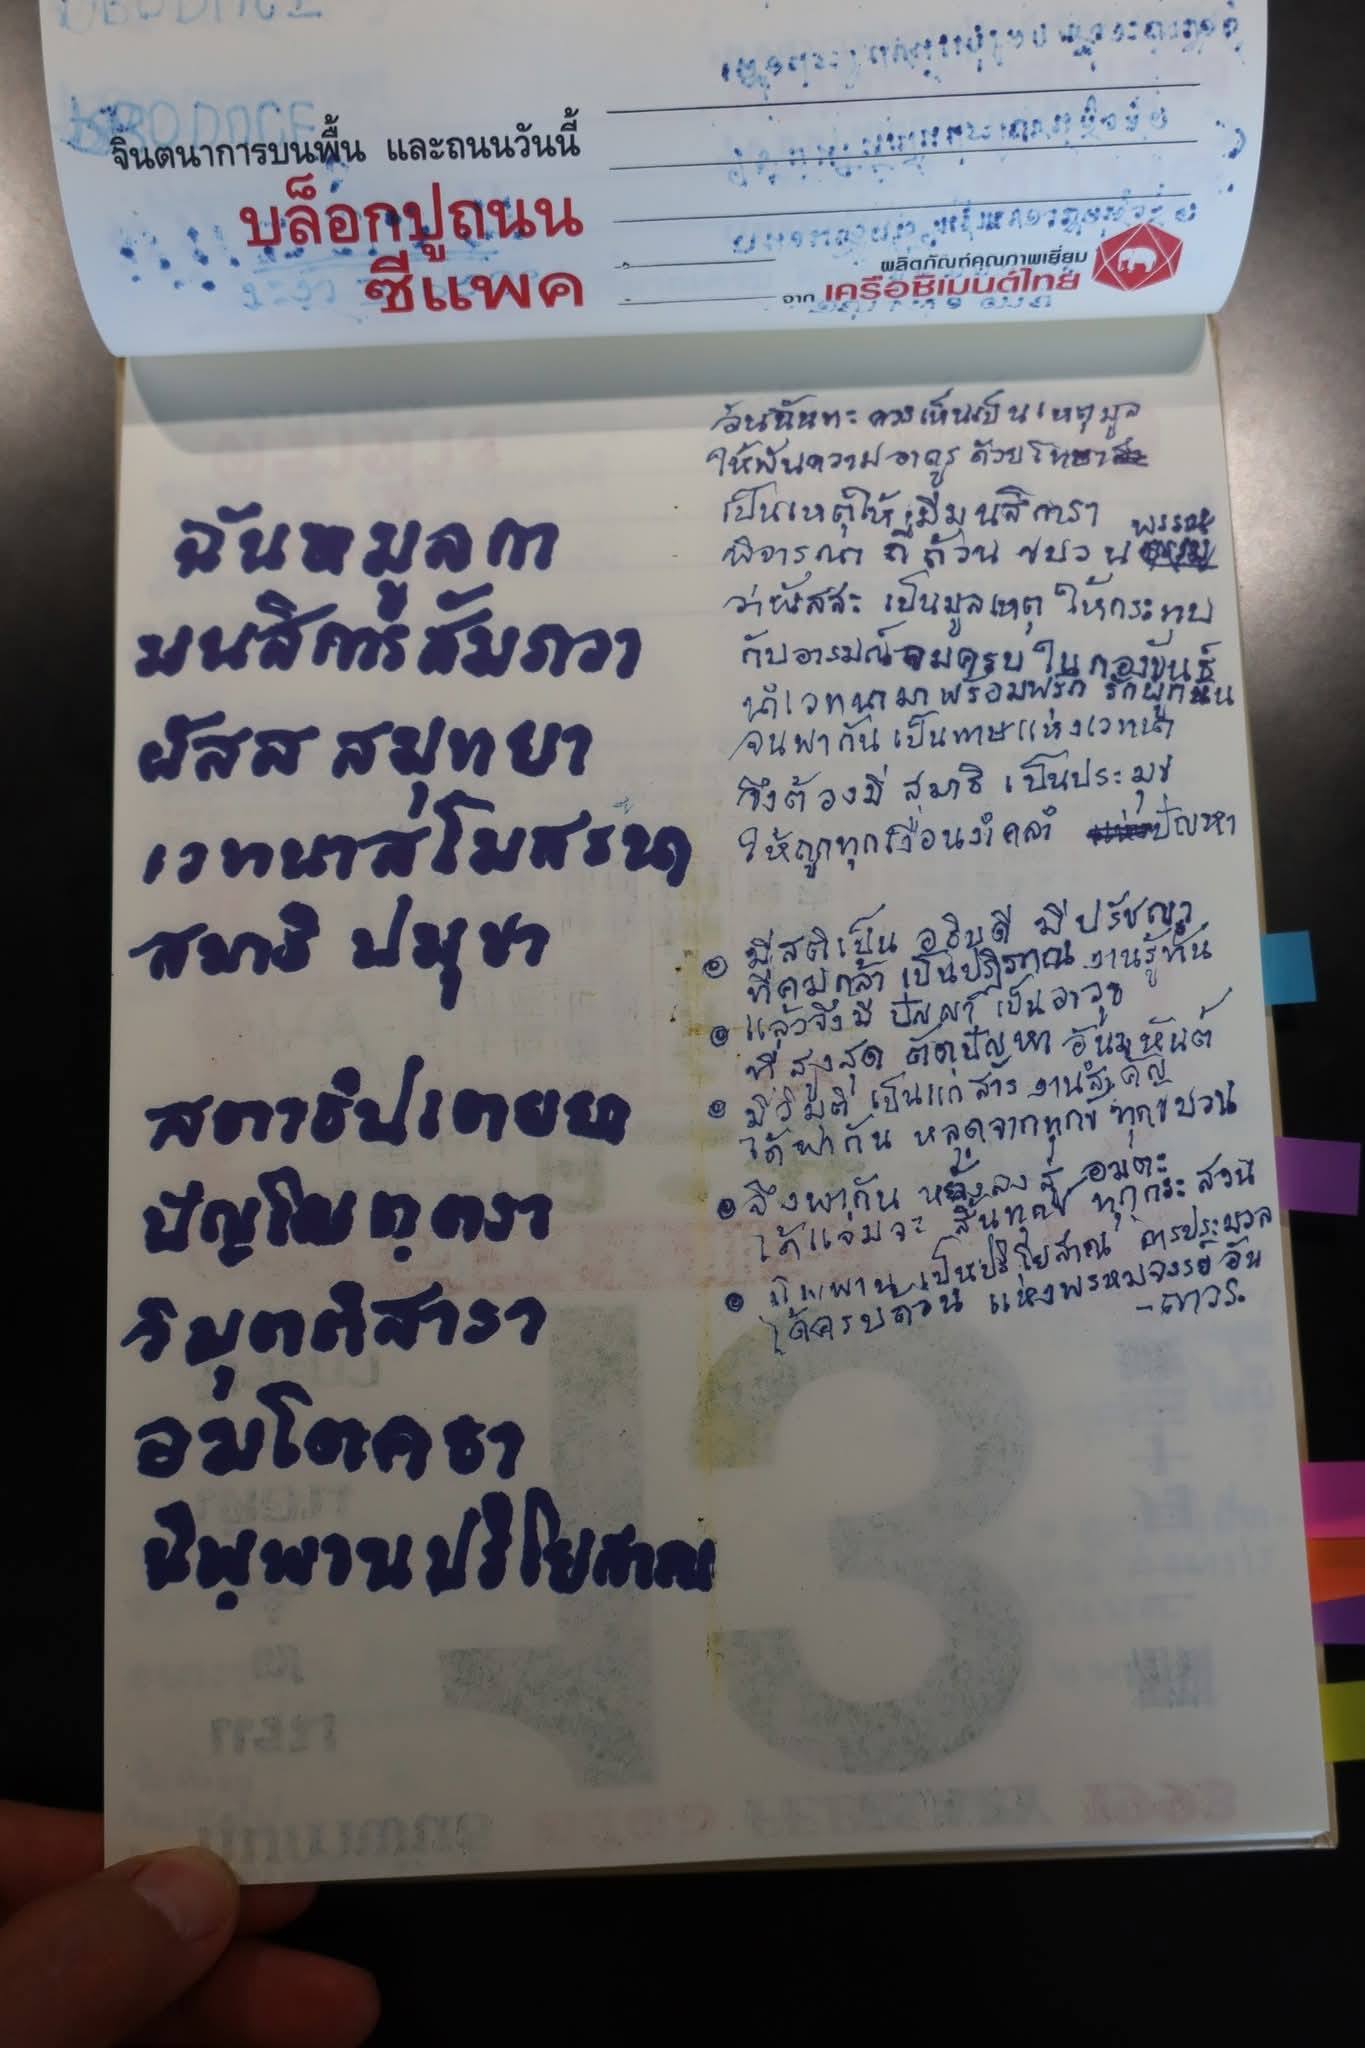 จินตนาการบนพื้น และถนนวันนี้
บล็อกปูถนน
ซีแพค
ผลิตภัณฑ์คุณภาพเยี่ยม
จาก เครือซิเมนต์ไทย
ฉันทมูลกา
มนสิการสัมภวา
ผัสสสมุทยา
เวทนาสโมสรณา
สมาธิปมุขา
สตาธิปเตยยา
ปัญโญตฺตรา
วิมุตติสารา
อมโตคธา
นิพฺพานปริโยสานา
อันฉันทะ ควรเห็นเป็นเหตุมูล
ให้
เป็นเหตุให้มีมนสิการา
พิจารณา ถี่ถ้วน ขบวน พรรณ
ว่าผัสสะ เป็นมูลเหตุ ให้กระทบ
กับอารมณ์ ครบในกองขันธ์
นำเวทนามาพร้อมพรัก รักผูกพัน
จนพากัน เป็นทาสแห่งเวทนา
จึงต้องมี สมาธิ เป็นประมุข
ให้ถูกทุกเงื่อนงำ ปัญหา
มีสติเป็น อธิบดี มีปรัชญา
ที่คมกล้า เป็น งานรู้ทัน
แล้วจึงมี ปัญญา เป็นอาวุธ
ที่สูงสุด ตัดปัญหา
มีวิมุติ เป็นแก่นสาร งานสำคัญ
ได้พากัน หลุดจากทุกข์ ทุกขบวน
จึงพากัน หยั่งลงสู่ อมตะ
ได้ สิ้นทุกข์ ทุกกระ
นิพพาน เป็นปริโยสาน การประมวล
ได้ครบถ้วน แห่งพรหมจรรย์ อัน
-ถาวร